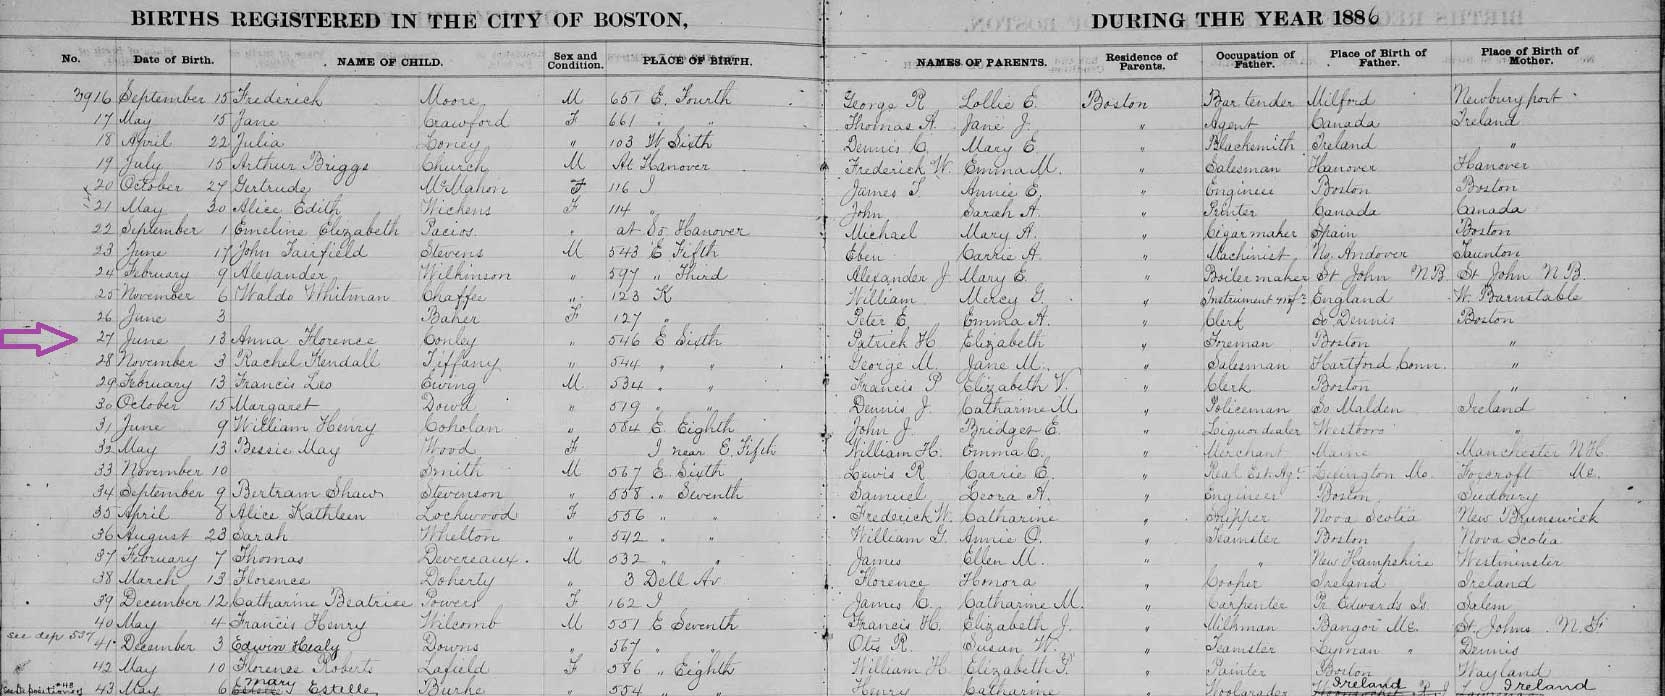 BIRTHS REGISTERED IN THE CITY OF BOSTON, DURING THE YEAR 1886
No. Date of Birth. NAME OF CHILD. Sex and Condition. PLACE OF BIRTH. NAMES OF PARENTS. Residence of Parents. Occupation of Father. Place of Birth of Father. Place of Birth of Mother.
3916 September 15 Frederick Moore M 651 E. Fourth George R Lollie E. Boston Bartender Milford Newburyport
17 May 15 Jane Crawford F 661 " " Thomas A. Jane J. " Agent Canada Ireland
18 April 22 Julia Coney " 103 W Sixth Dennis C. Mary E. " Blacksmith Ireland "
19 July 15 Arthur Briggs Church M At Hanover Frederick W. Emma M. " Salesman Hanover Hanover
20 October 27 Gertrude McMahon F 116 I James Annie E. " Engineer Boston Boston
21 May 30 Alice Edith Wickens F 114 " John Sarah A. " Printer Canada Canada
22 September 1 Emeline Elizabeth Pacios " at So Hanover Michael Mary A. " Cigar maker Spain Boston
23 June 17 John Fairfield Stevens M 543 E Fifth Eben Carrie A. " Machinist No. Andover Taunton
24 February 9 Alexander Wilkinson " 597 " Third Alexander J. Mary E. " Boilermaker St John N B St John N B.
25 November 6 Waldo Whitman Chaffee " 123 K William Mercy G. " Instrument mfr England W. Barnstable
26 June 3 Baker F 127 " Peter E. Emma A. " Clerk So Dennis Boston
27 June 13 Anna Florence Conley " 546 E Sixth Patrick H. Elizabeth " Foreman Boston "
28 November 3 Rachel Kendall Tiffany " 544 " " George M. Jane M. " Salesman Hartford Conn. "
29 February 13 Francis Leo Ewing M 534 " " Francis P Elizabeth V. " Clerk Boston "
30 October 15 Margaret Dowd " 519 " " Dennis J. Catharine M. " Policeman So Malden Ireland
31 June 9 William Henry Coholan " 584 E. Eighth John J. Bridget E. " Liquor dealer Westboro "
32 May 13 Bessie May Wood F I near E. Fifth William H. Emma C. " Merchant Maine Manchester N H
33 November 10 Smith M 567 E. Sixth Lewis R Carrie E. " Real Est. Agt. Lexington Foxcroft Me.
34 September 9 Bertram Shaw Stevenson " 558 " Seventh Samuel Leora A. " Engineer Boston Sudbury
35 April 8 Alice Kathleen Lockwood F 556 " " Frederick W. Catharine " Nova Scotia New Brunswick
36 August 23 Sarah Whelton " 542 " " William Annie " Teamster Boston Nova Scotia
37 February 7 Thomas Devereaux M 532 " " James Ellen M. " " New Hampshire Westminster
38 March 13 Florence Doherty " 3 Dell Av Florence Honora " Cooper Ireland Ireland
39 December 12 Catharine Beatrice Powers F 162 I James C. Catharine M. " Carpenter Pr. Edwards Is. Salem
40 May 4 Francis Henry Wilcomb M 551 E Seventh Francis H. Elizabeth J. " Milkman Bangor Me. St. Johns N. F
see dep 537 41 December 3 Edwin Healy Downs " 567 " " Otis R. Susan W. " Teamster Lyman " Dennis
42 May 10 Florence Roberts Lafield F 586 " Eighth William H Elizabeth " Painter Boston Wayland
43 May 6 Mary Estelle Burke " 554 " " Henry Catharine " Woolgrader Ireland Ireland